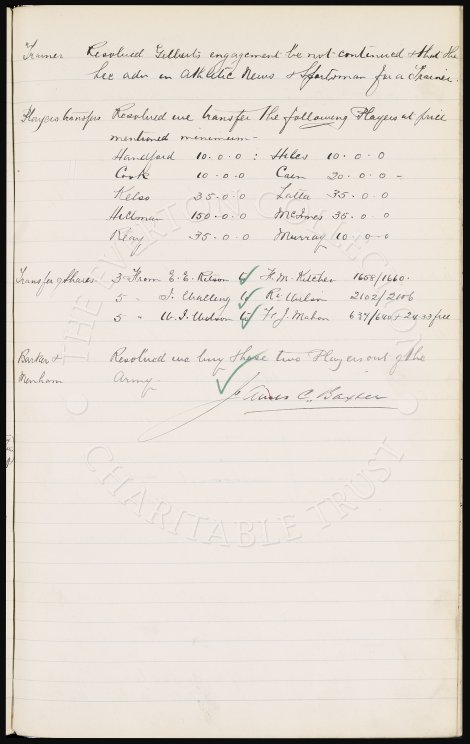 Trainer Resolved Gilberts engagement be not continued & that the
Sec adv in Athletic News & Sportsman for a Trainer.
Players transfers Resolved we transfer the following Players at price
mentioned minimum -
Handford 10.0.0 : Hiles 10.0.0
Cook 10.0.0 Cain 20.0.0 -
Kelso 35.0.0 Latta 35.0.0
Hillman 150.0.0 McInnes 35.0.0
Reay 35.0.0 Murray 10.0.0
Transfer of Shares 3 From E. E. to H. M. Kitchen 1658/1660.
5 " J. to Wilson 2102/2106
5 " W. J. to J. Mahon 637/640 &
Barker & Resolved we buy these two Players out of the
Menham Army.
James C. Baxter
THE EVERTON COLLECTION
CHARITABLE TRUST